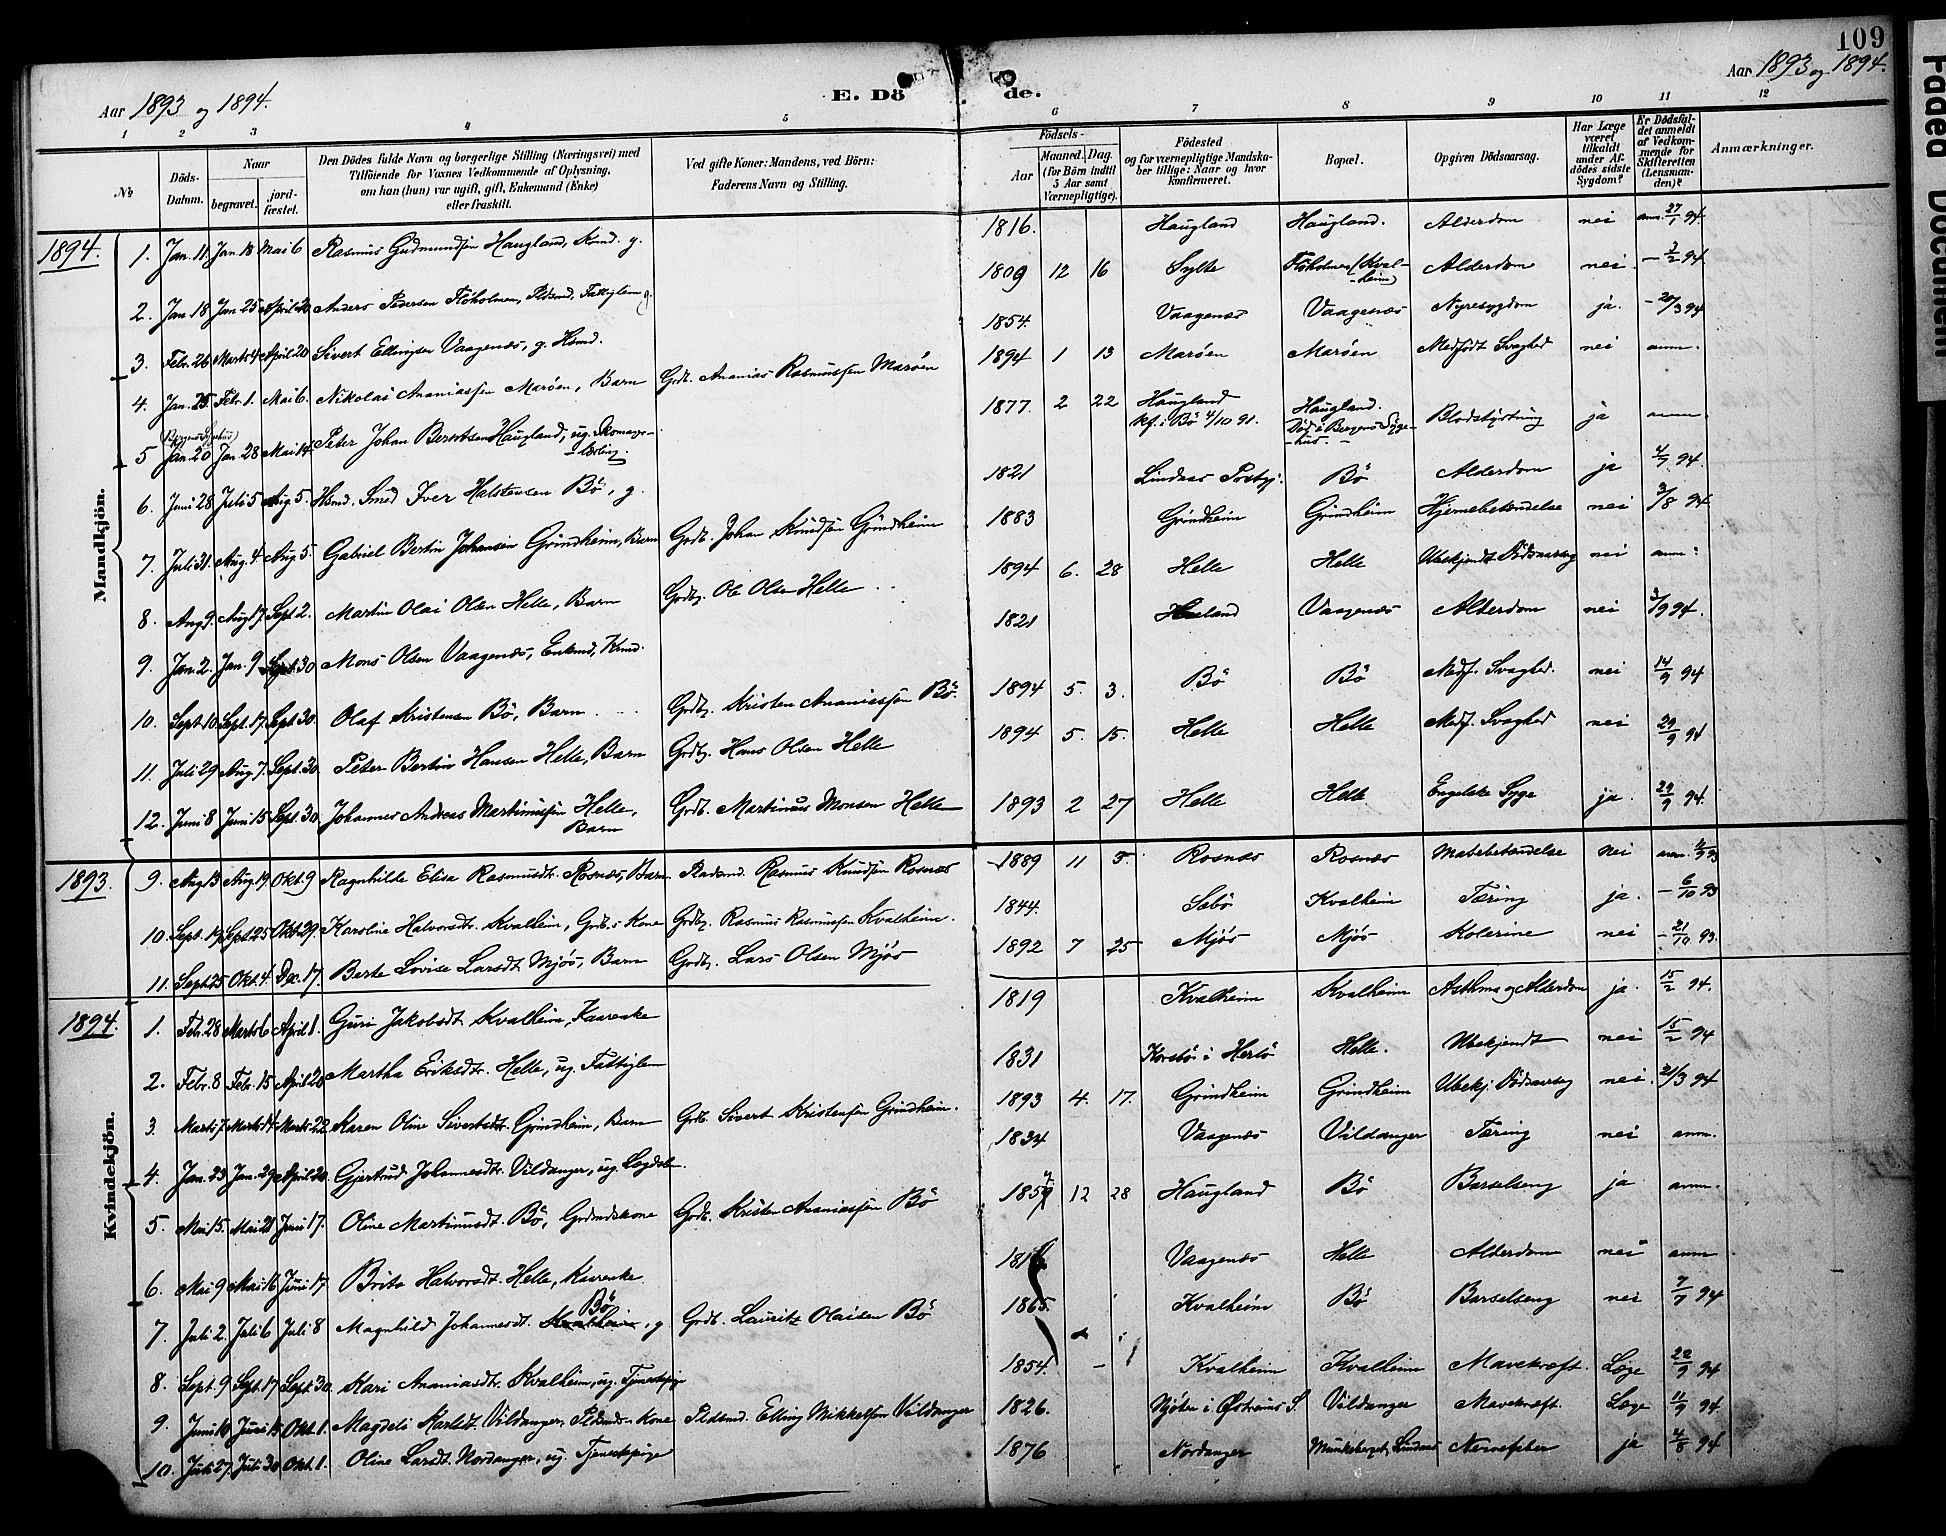 109
Aar 1893 og 1894. E. Dö de. Aar 1893 og 1894.
1 2 3 4 5 6 7 8 9 10 11 12
№ Döds-Datum. Naar begravet. jordfæstet. Den Dödes fulde Navn og borgerlige Stilling (Næringsvei) med Tilföiende for Voxnes Vedkommende af Oplysning, om han (hun) var ugift, gift, Enkemand (Enke) eller fraskilt. Ved gifte Koner: Mandens, ved Börn: Faderens Navn og Stilling. Födsels- Aar Maaned. Dag. (for Börn indtil 5 Aar samt Værnepligtige). Födested og for værnepligtige Mandskaber tillige: Naar og hvor konfirmeret. Bopæl. Opgiven Dödsaarsag. Har Læge været tilkaldt under Afdödes sidste Sygdom? Er Dödsfaldet anmeldt af Vedkommende for Skifteretten (Lensmanden)? Anmærkninger.
Mandkjön.
1894. 1. Jan. 11. Jan. 18 Mai 6 Rasmus Gudmundsen Haugland, Kmd. g. 1816. Haugland Haugland. Alderdom nei anm. 27/1 94.
2. Jan. 18 Jan. 25 April 20 Anders Pedersen Flöholmen, Pldsmd, Fattiglem g. 1809 12 16 Sylte Flöholmen (Kvalheim) Alderdom nei - 2/2 94
3. Febr. 26 Marts 4 April 20 Sivert Ellingsen Vaagenæs, g. Hsmd. 1854. Vaagenæs Vaagenæs Nyresygdom ja. - 20/3 94
4. Jan. 25 Febr. 1. Mai 6. Nikolai Ananiassen Maröen, Barn Grdb. Ananias Rasmussen Maröen 1894 1 13 Maröen Maröen Medfödt Svaghed nei anm.
5 (Bergens Sygehus) Jan. 20 Jan. 28 Mai 14 Peter Johan Berntsen Haugland, ug. Skomagerlærling. 1877. 2 22 Haugland kf. i Bö 4/10 91. Haugland. Död i Bergens Sygehus. Blodstyrtning ja anm.
6. Juni 28 Juli 5 Aug 5. Hsmd. Smed Iver Halstensen Bö, g. 1821 Lindaas Prstgj. Bö Alderdom ja 4/7 94.
7. Juli 31. Aug. 4 Aug 5. Gabriel Bertin Johansen Grindheim, Barn Grdb. Johan Knudsen Grindheim 1883 Grindheim Grindheim Hjernebetændelse nei 3/8 94
8. Aug 9. Aug 17. Sept 2. Martin Olai Olsen Helle, Barn Grdbg. Ole Olsen Helle 1894 6. 28 Helle Helle Ubekjendt Dödsaarsag nei anm.
9. Jan. 2. Jan. 9 Sept. 30 Mons Olsen Vaagenæs, Enkmd, Kmd. 1821 Vaagenæs Alderdom nei 3/9 94.
10. Sept. 10 Sept. 17. Sept 30. Olaf Kristensen Bö, Barn Grdbg. Kristen Ananiassen Bö. 1894 5. 3. Bö Bö Medf. Svaghed. nei 14/9 94
11. Juli 29 Aug. 7. Sept. 30. Peter Bertin Hansen Helle, Barn Grdbg. Hans Olsen Helle 1894 5. 15. Helle Helle Medf. Svaghed nei 29/9 94
12. Juni 8 Juni 15 Sept. 30. Johannes Andreas Martinussen Helle, Barn Grdb. Martinus Monsen Helle 1893 2 27 Helle Helle Engelske Syge ja. 29/9 94.
Kvindekjön.
1893. 9. Aug 13 Aug. 19. Okt. 9 Ragnhilde Elisa Rasmusdt. Rosnæs, Barn Pladsmd. Rasmus Knudsen Rosnæs 1889 11 5. Rosnæs Rosnæs Mavebetændelse nei anm. 93
10. Sept. 19. Sept 25 Okt. 29. Karoline Halvorsdt. Kvalheim, Grdb.s Kone Grdbg. Rasmus Rasmussen Kvalheim. 1844. Sæbö Kvalheim Tæring ja. - 6/10 93
11. Sept. 25 Okt. 4. Dec. 17. Berte Lovise Larsdt. Mjös, Barn Grdbg. Lars Olsen Mjös 1892 7 25 Mjös Mjös Kolerine nei - 21/10 93.
1894. 1. Febr. 28 Marts 6 April 1. Guri Jakobsdt. Kvalheim, Kaarenke 1819 Kvalheim Kvalheim Asthma og Alderdom ja. 15/2 94.
2. Febr. 8 Febr. 15 April 20 Martha Eriksdtr. Helle, ug. Fattiglem 1831 Korsböi i Herlö Helle. Ubekjendt nei 15/2 94
3. Marts 7 Marts 14 Marts 22 Karen Oline Sivertsdt. Grindheim, Barn Grdb. Sivert Kristensen Grindheim. 1893 4. 17. Grindheim Grindheim Ubekj. Dödsaarsag nei. 21/3 94
4. Jan. 23 Jan. 29 April 20. Gjertrud Johannesdtr. Vildanger, ug. Lægdslem. 1834 Vaagenæs Vildanger Tæring nei anm.
5. Mai 15. Mai 21 Juni 17. Oline Martinusdt. Bö, Grdmdskone Grdb. Kristen Ananiassen Bö 1857 12 28 Haugland Bö Barselseng ja anm.
6. Mai 9 Mai 16 Juni 17. Brita Halvorsdt. Helle, Kaarenke. Vaagenæs Helle Alderdom nei anm
7. Juli 2. Juli 6 Juli 8 Magnhild Johannesdt. Kvalheim Bö, g Grdb. Lauritz Olaisen Bö 1865. Kvalheim Bö Barselseng nei 7/7 94
8. Sept. 9 Sept. 17 Sept. 30. Kari Ananiasdtr. Kvalheim, ug. Tjenestepige 1854. Kvalheim Kvalheim Mavekræft. Læge 22/9 94
9. Juni 10 Juni 15 Okt. 1. Magdeli Karlsdt. Vildanger, Pldsmds.-Kone Pldsmd. Elling Mikkelsen Vildanger 1826. Njöten i Østreims S. Vildanger Mavekræft. Læge 11/9 94
10. Juli 27. Juli 30 Okt. 1. Oline Larsdt. Nordanger, ug. Tjenestepige 1876 Nordanger Munkeberget, Lindaas Nervefeber ja 4/8 94
Faded Document